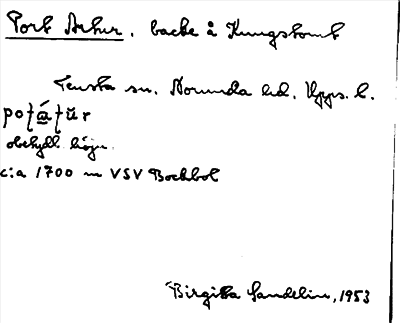 Port Arthur. backe å Kungstomt
Tensta sn. Norunda hd. Upps. l.
obetydl. höjn.
c:a 1700 m VSV Bockbol
Birgitta Sandelin, 1953